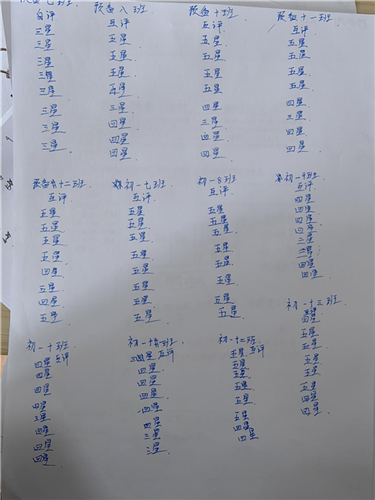 自评
三星
三星
三星
三星
三星
三星
三星
三星
预备八班
互评
五星
五星
五星
五星
三星
四星
四星
预备十班
互评
五星
五星
五星
五星
四星
三星
四星
四星
预备十一班
互评
五星
五星
五星
五星
四星
三星
四星
四星
预备十二班
互评
五星
五星
五星
五星
四星
五星
四星
五星
初一七班
互评
五星
五星
五星
五星
五星
五星
五星
五星
初一8班
互评
五星
五星
五星
五星
五星
五星
五星
五星
初一9班
互评
四星
四星
四星
三星
三星
四星
四星
初一十班
互评
四星
四星
四星
四星
三星
四星
四星
四星
初一十
互评
四星
四星
四星
四星
四星
三星
三星
初一十二班
互评
五星
五星
五星
五星
五星
五星
四星
四星
初一十三班
四星
五星
五星
五星
五星
五星
四星
四星